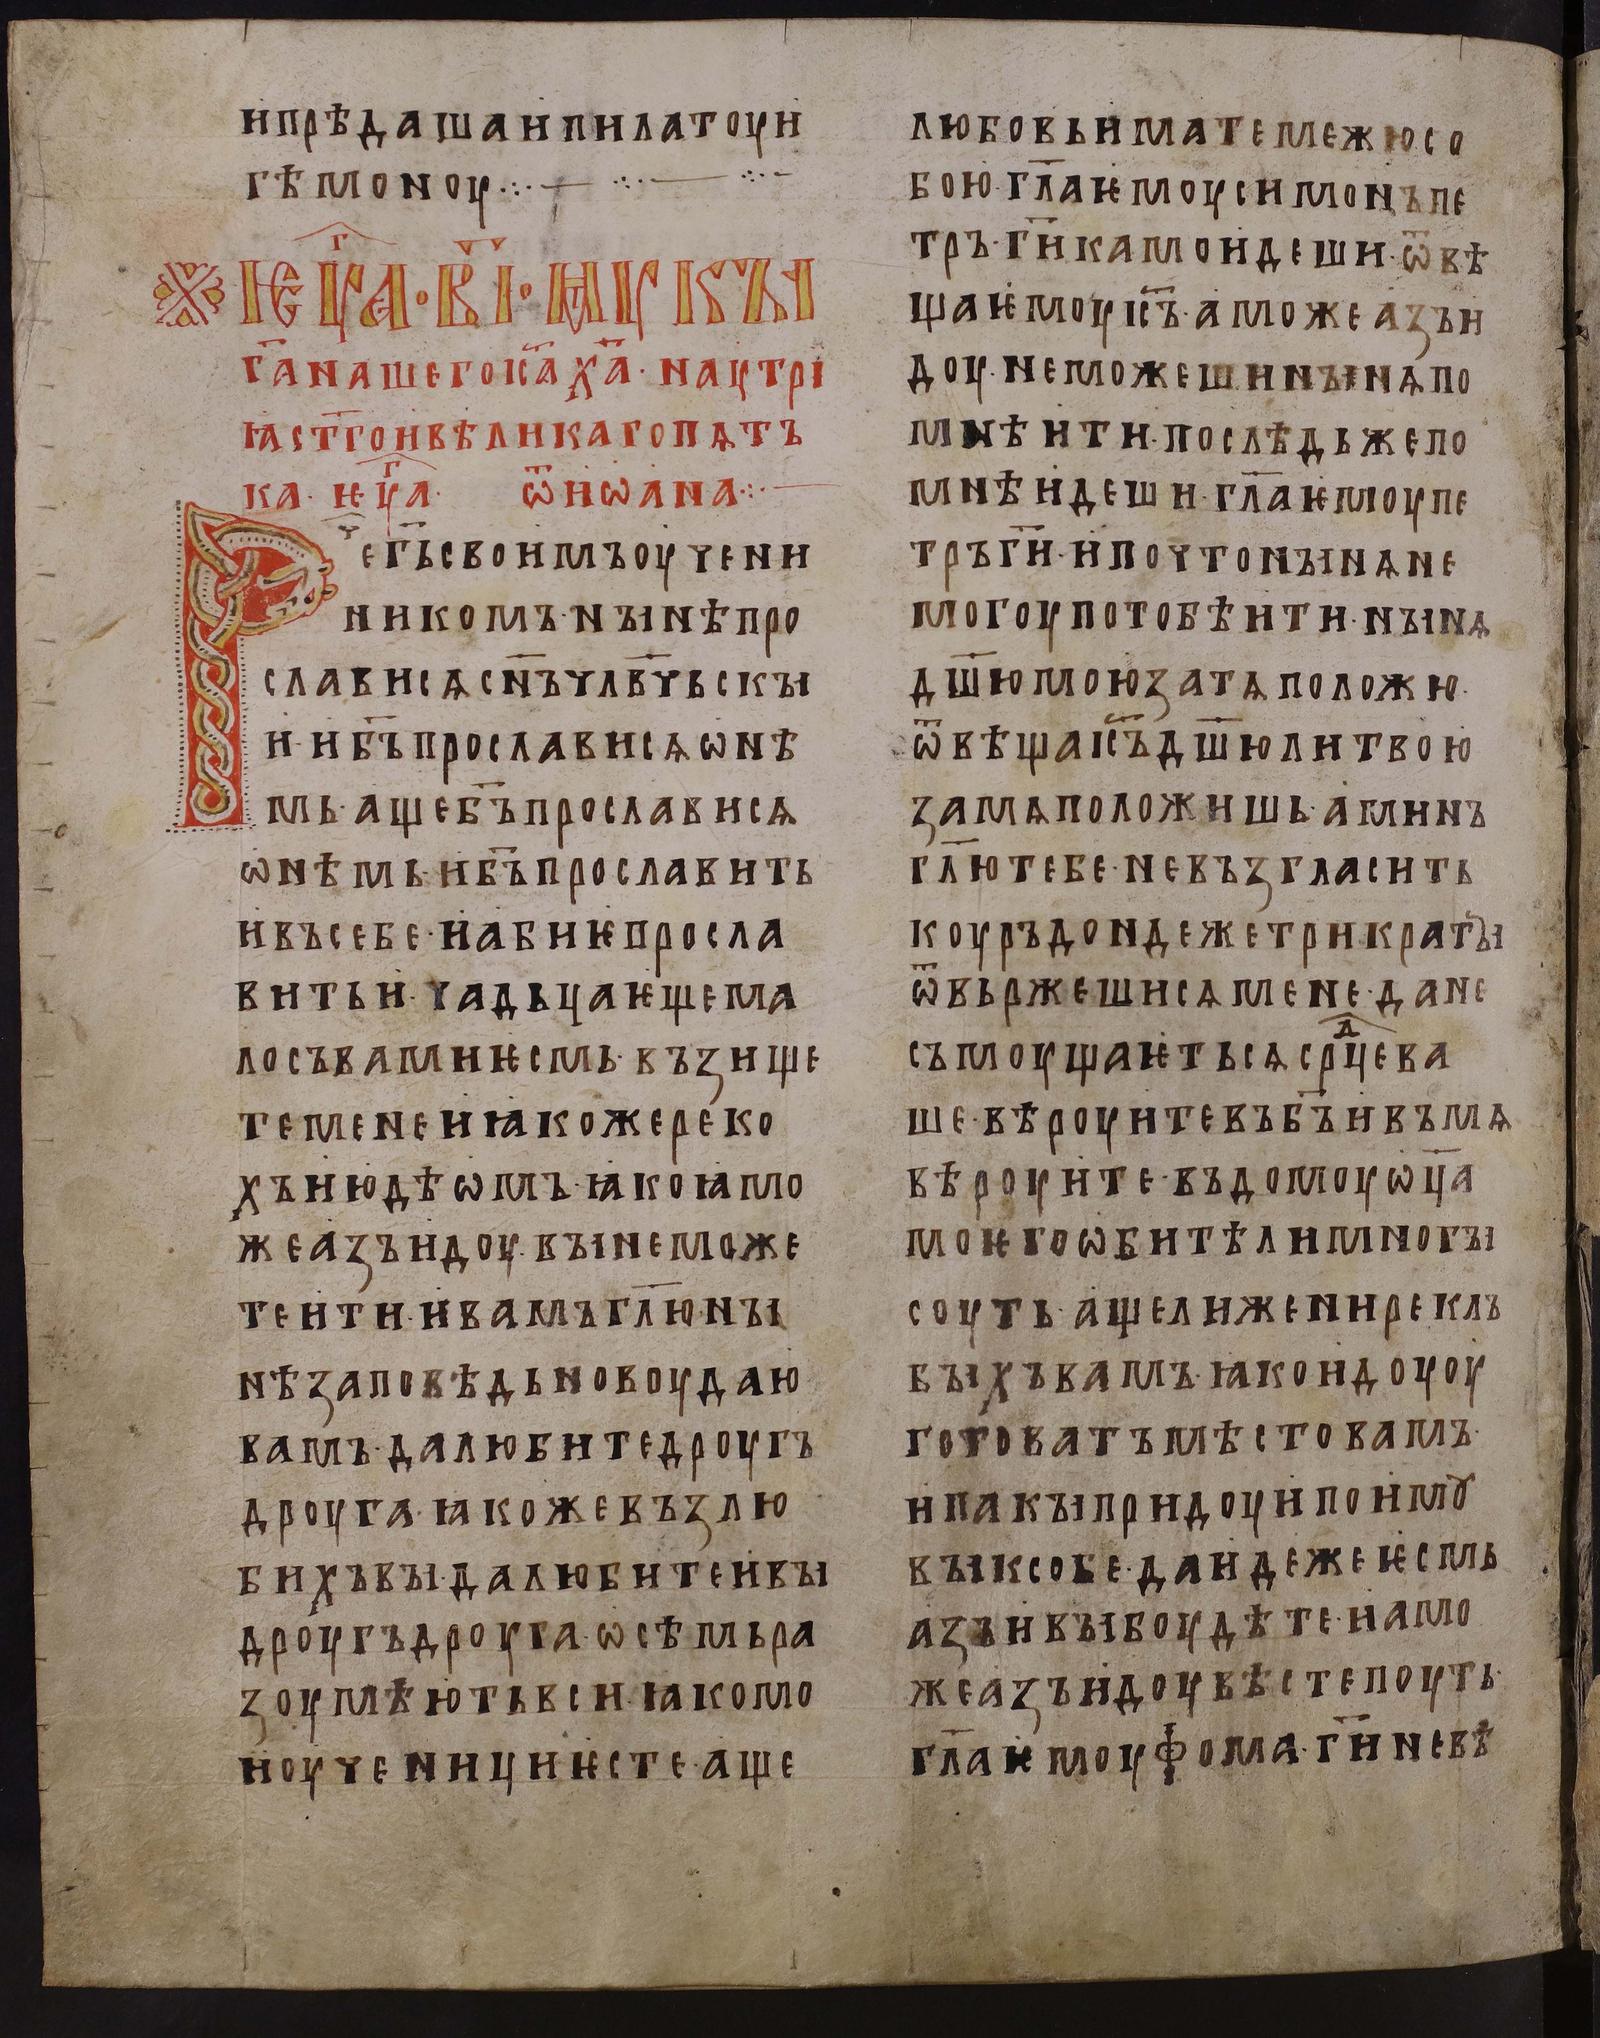 и прѣдаша и пилатоу и
гѣмоноу ·:·— ·:·— ·:·-
ѥѵг҃а · в҃і · мѹкꙑ
г҃а нашего іс҃а х҃а · на ѹтрі
ꙗ ст҃го и вѣликаго пѧтъ
ка · ѥѵг҃а · ѿ иѡана ·:·—
Рече г҃ь своимъ оучени
никомъ · нꙑнѣ про
слависѧ сн҃ъ чл҃вчьскꙑ
и · и б҃ъ прослависѧ ѡ нѣ
мь · аще б҃ъ прослависѧ
ѡ нѣмь · и б҃ъ прославить
и въ себе · и абиѥ просла
вить и · чадьца ѥще ма
ло съ вами ѥсмь · възище
те мене и ꙗкоже реко
хъ июдѣѡмъ · ꙗко ꙗмо
же азъ идоу · вꙑ не може
те ити · и вамъ гл҃ю нꙑ
нѣ заповѣдь новоу даю
вамъ · да любите дроугъ
дроуга · ꙗкоже възлю
бихъ вꙑ · да любите и вꙑ
дроугъ дроуга · ѡ сѣмь ра
зоумѣють вси · ꙗко мо
и оученици ѥсте · аще
любовь имате межю со
бою · гл҃а ѥмоу симонъ пе
тръ · г҃и камо идеши · ѿвѣ
ща ѥмоу іс҃ъ · аможе азъ и
доу · не можеши нꙑнѧ по
мнѣ ити · послѣдь же по
мнѣ идеши · гл҃а ѥмоу пе
тръ г҃и · и почто нꙑнѧ не
могоу по тобѣ ити · нꙑнѧ
дш҃ю мою за тѧ положю ·
ѿвѣща іс҃ъ дш҃ю ли твою
за мѧ положишь · аминъ
гл҃ю тебе · не възгласить
коуръ дондеже трикратꙑ
ѿвьржешисѧ мене · да не
съмоущаѥтьсѧ срдце ва
ше · вѣроуите въ б҃ъ и въ мѧ
вѣроуите · въ домоу ѡц҃а
моѥго ѡбитѣли многꙑ
соуть · аще ли же ни реклъ
бꙑхъ вамъ · ꙗко идоу оу
готоватъ мѣсто вамъ ·
и пакꙑ придоу и поимꙋ
вꙑ к собе · да идеже ѥсмь
азъ и вꙑ боудѣте · и амо
же азъ идоу вѣсте поуть ·
гл҃а ѥмоу фома · г҃и не вѣ